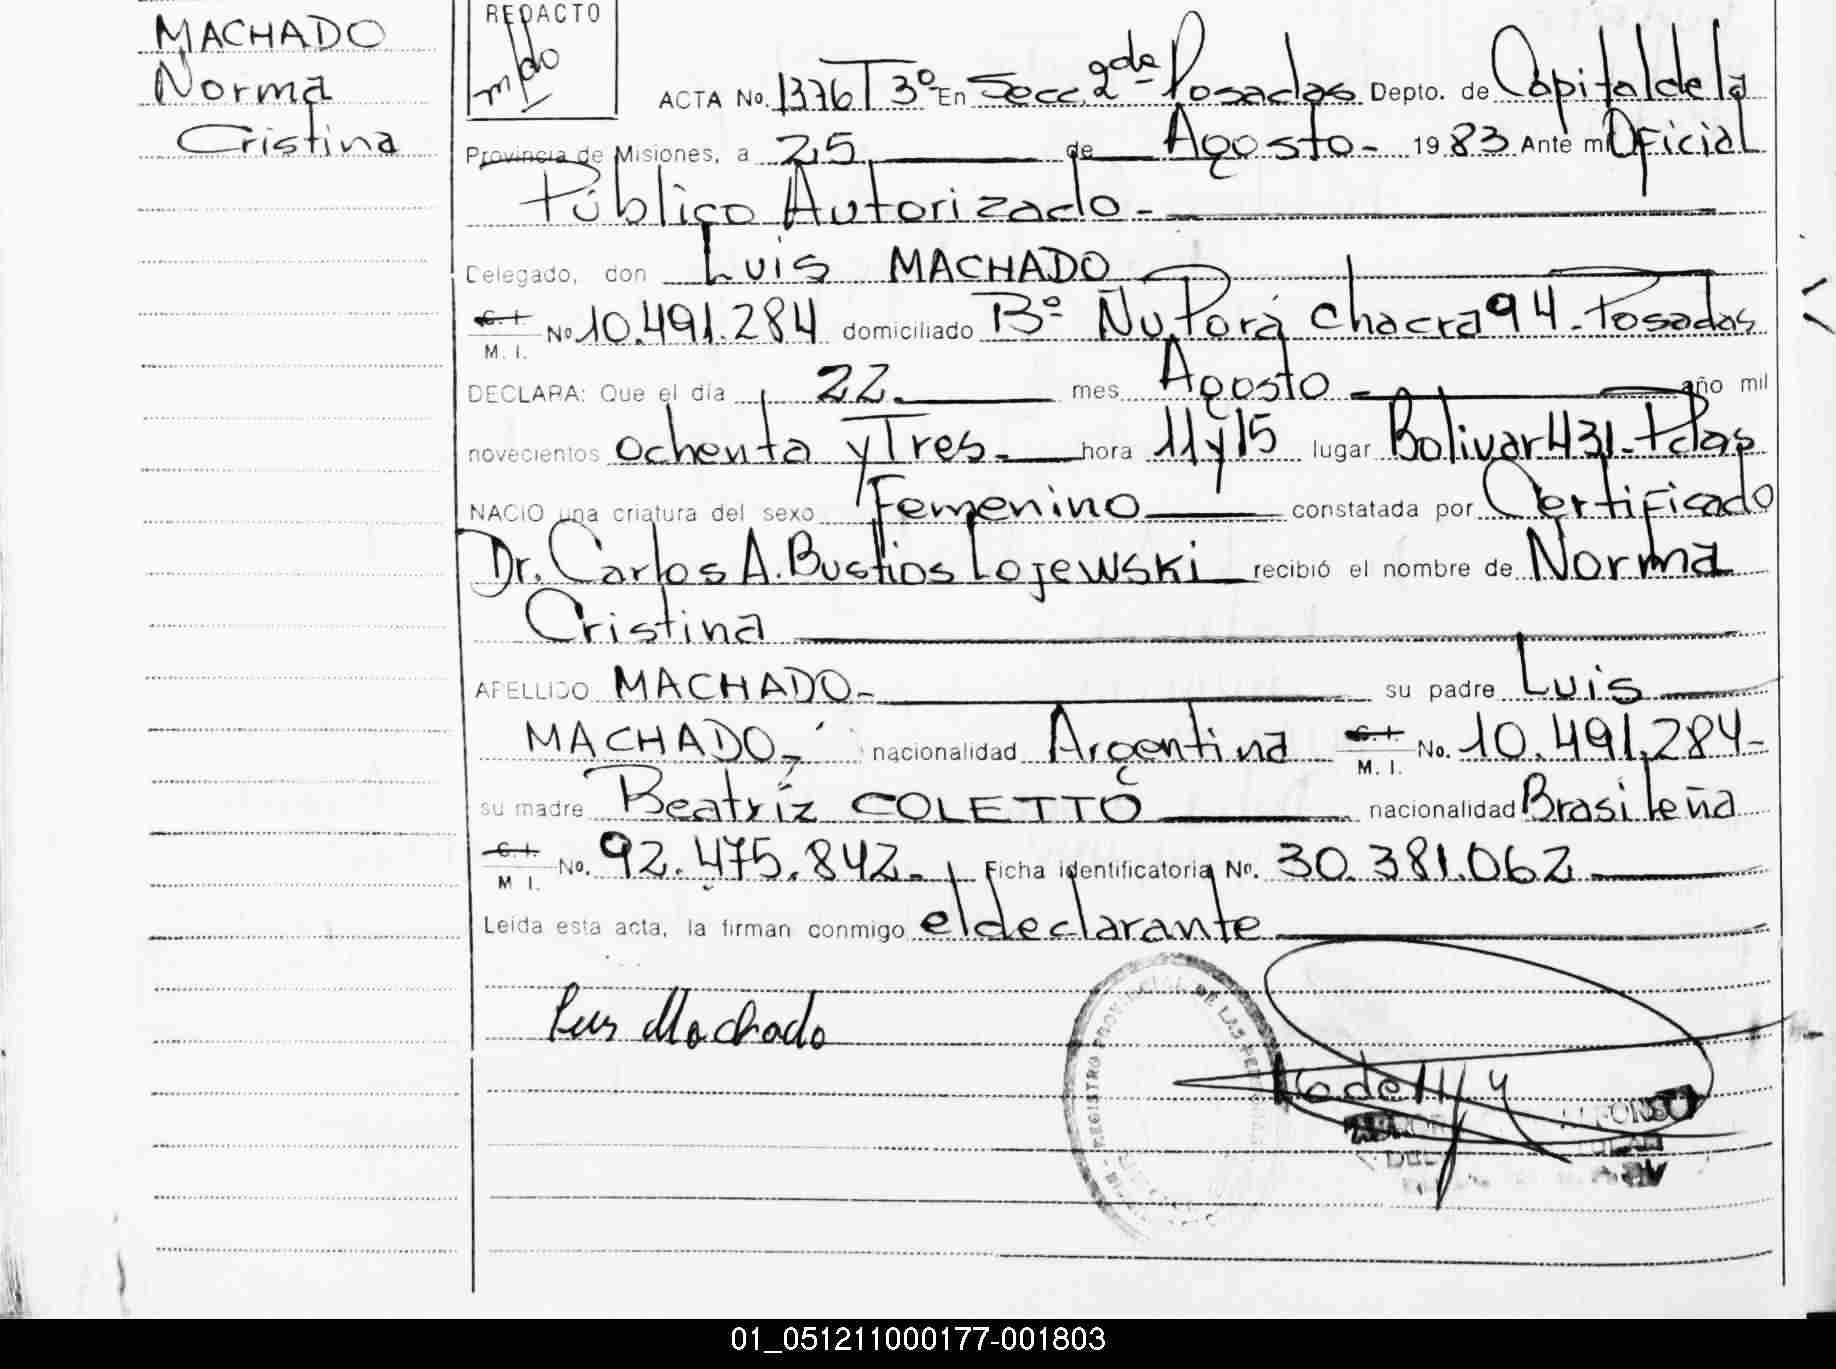 MACHADO
Norma
Cristina
REDACTO
ACTA No. 1376 T 3º En Secc. 2da Posadas Depto. de Capital de la
Provincia de Misiones, a 25 de Agosto - 1983 Ante mi Oficial
Público Autorizado -
Delegado, don Luis MACHADO
C. I. No 10.491.284 domiciliado Bº Ñu Porá Chacra 94 - Posadas
M. I.
DECLARA: Que el día 22 mes Agosto - año mil
novecientos ochenta y Tres - hora 11 y 15 lugar Bolivar 431 - Pdas
NACIO una criatura del sexo Femenino constatada por Certificado
Dr. Carlos A. Bustios Lojewski recibió el nombre de Norma
Cristina
APELLIDO MACHADO - su padre Luis
MACHADO - nacionalidad Argentina C. I. No. 10.491.284 -
M. I.
su madre Beatríz COLETTO nacionalidad Brasileña
C. I. No. 92.475.842 - Ficha identificatoria No. 30.381.062
M. I.
Leída esta acta, la firman conmigo el declarante
Luis Machado
REGISTRO PROVINCIAL DE LAS
01_051211000177-001803